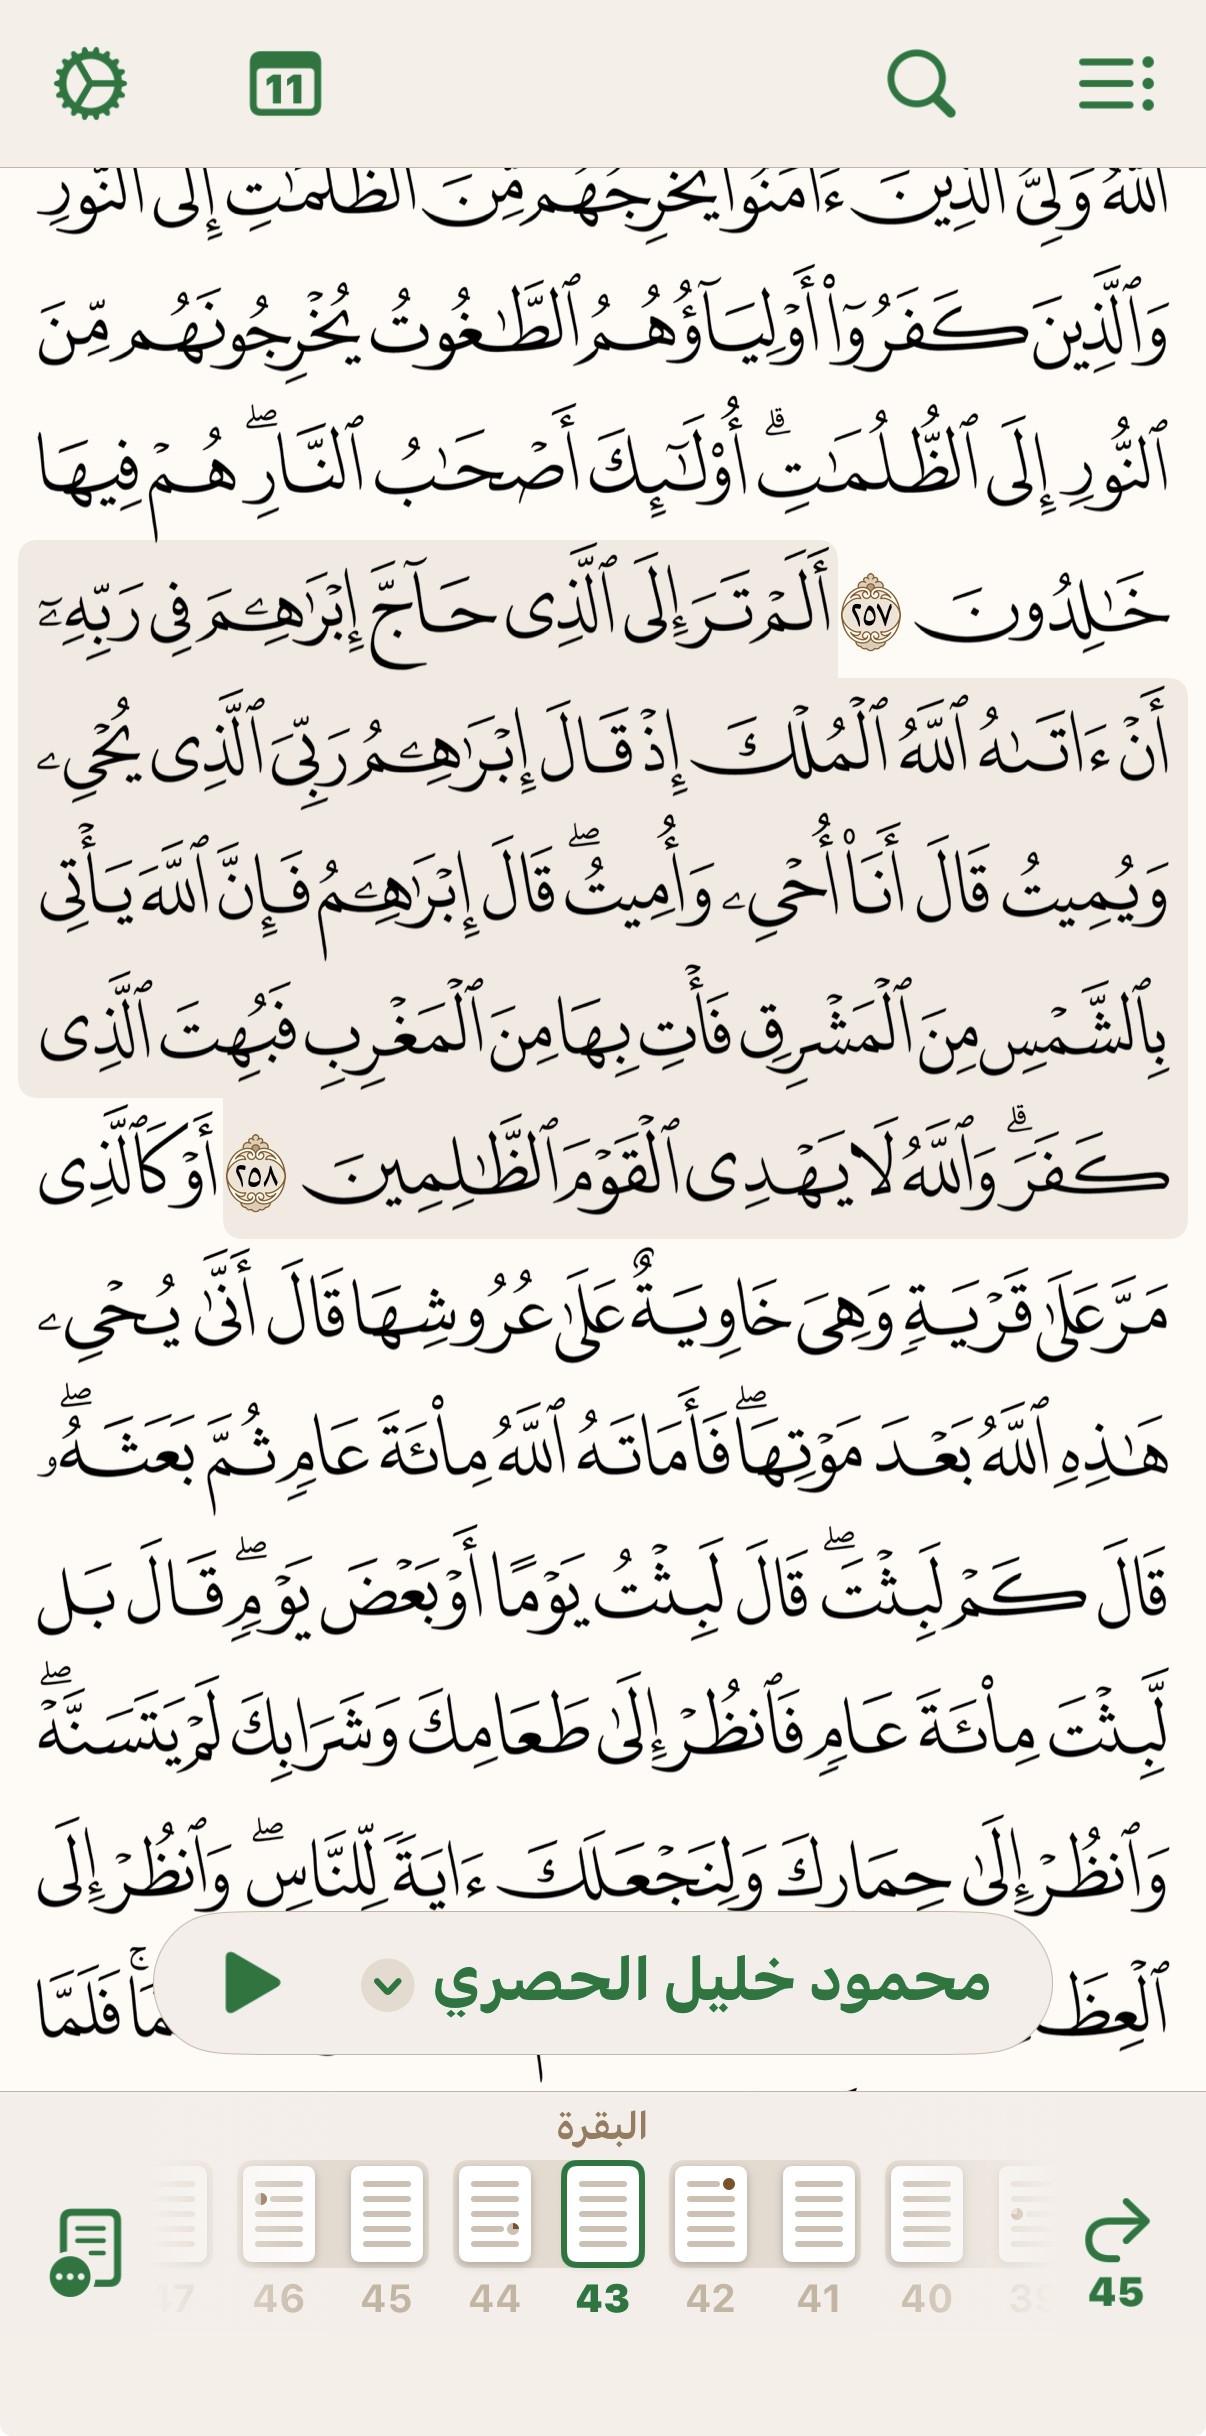 11
ٱللَّهُ وَلِىُّ ٱلَّذِينَ ءَامَنُوا۟ يُخْرِجُهُم مِّنَ ٱلظُّلُمَـٰتِ إِلَى ٱلنُّورِ
وَٱلَّذِينَ كَفَرُوٓا۟ أَوْلِيَآؤُهُمُ ٱلطَّـٰغُوتُ يُخْرِجُونَهُم مِّنَ
ٱلنُّورِ إِلَى ٱلظُّلُمَـٰتِ ۗ أُو۟لَـٰٓئِكَ أَصْحَـٰبُ ٱلنَّارِ ۖ هُمْ فِيهَا
خَـٰلِدُونَ ٢٥٧ أَلَمْ تَرَ إِلَى ٱلَّذِى حَآجَّ إِبْرَٰهِـۧمَ فِى رَبِّهِۦٓ
أَنْ ءَاتَىٰهُ ٱللَّهُ ٱلْمُلْكَ إِذْ قَالَ إِبْرَٰهِـۧمُ رَبِّىَ ٱلَّذِى يُحْىِۦ
وَيُمِيتُ قَالَ أَنَا۠ أُحْىِۦ وَأُمِيتُ ۖ قَالَ إِبْرَٰهِـۧمُ فَإِنَّ ٱللَّهَ يَأْتِى
بِٱلشَّمْسِ مِنَ ٱلْمَشْرِقِ فَأْتِ بِهَا مِنَ ٱلْمَغْرِبِ فَبُهِتَ ٱلَّذِى
كَفَرَ ۗ وَٱللَّهُ لَا يَهْدِى ٱلْقَوْمَ ٱلظَّـٰلِمِينَ ٢٥٨ أَوْ كَٱلَّذِى
مَرَّ عَلَىٰ قَرْيَةٍ وَهِىَ خَاوِيَةٌ عَلَىٰ عُرُوشِهَا قَالَ أَنَّىٰ يُحْىِۦ
هَـٰذِهِ ٱللَّهُ بَعْدَ مَوْتِهَا ۖ فَأَمَاتَهُ ٱللَّهُ مِا۟ئَةَ عَامٍ ثُمَّ بَعَثَهُۥ ۖ
قَالَ كَمْ لَبِثْتَ ۖ قَالَ لَبِثْتُ يَوْمًا أَوْ بَعْضَ يَوْمٍ ۖ قَالَ بَل
لَّبِثْتَ مِا۟ئَةَ عَامٍ فَٱنظُرْ إِلَىٰ طَعَامِكَ وَشَرَابِكَ لَمْ يَتَسَنَّهْ ۖ
وَٱنظُرْ إِلَىٰ حِمَارِكَ وَلِنَجْعَلَكَ ءَايَةً لِّلنَّاسِ ۖ وَٱنظُرْ إِلَى
فَلَمَّا
محمود خليل الحصري
البقرة
45
40
41
42
43
44
45
46